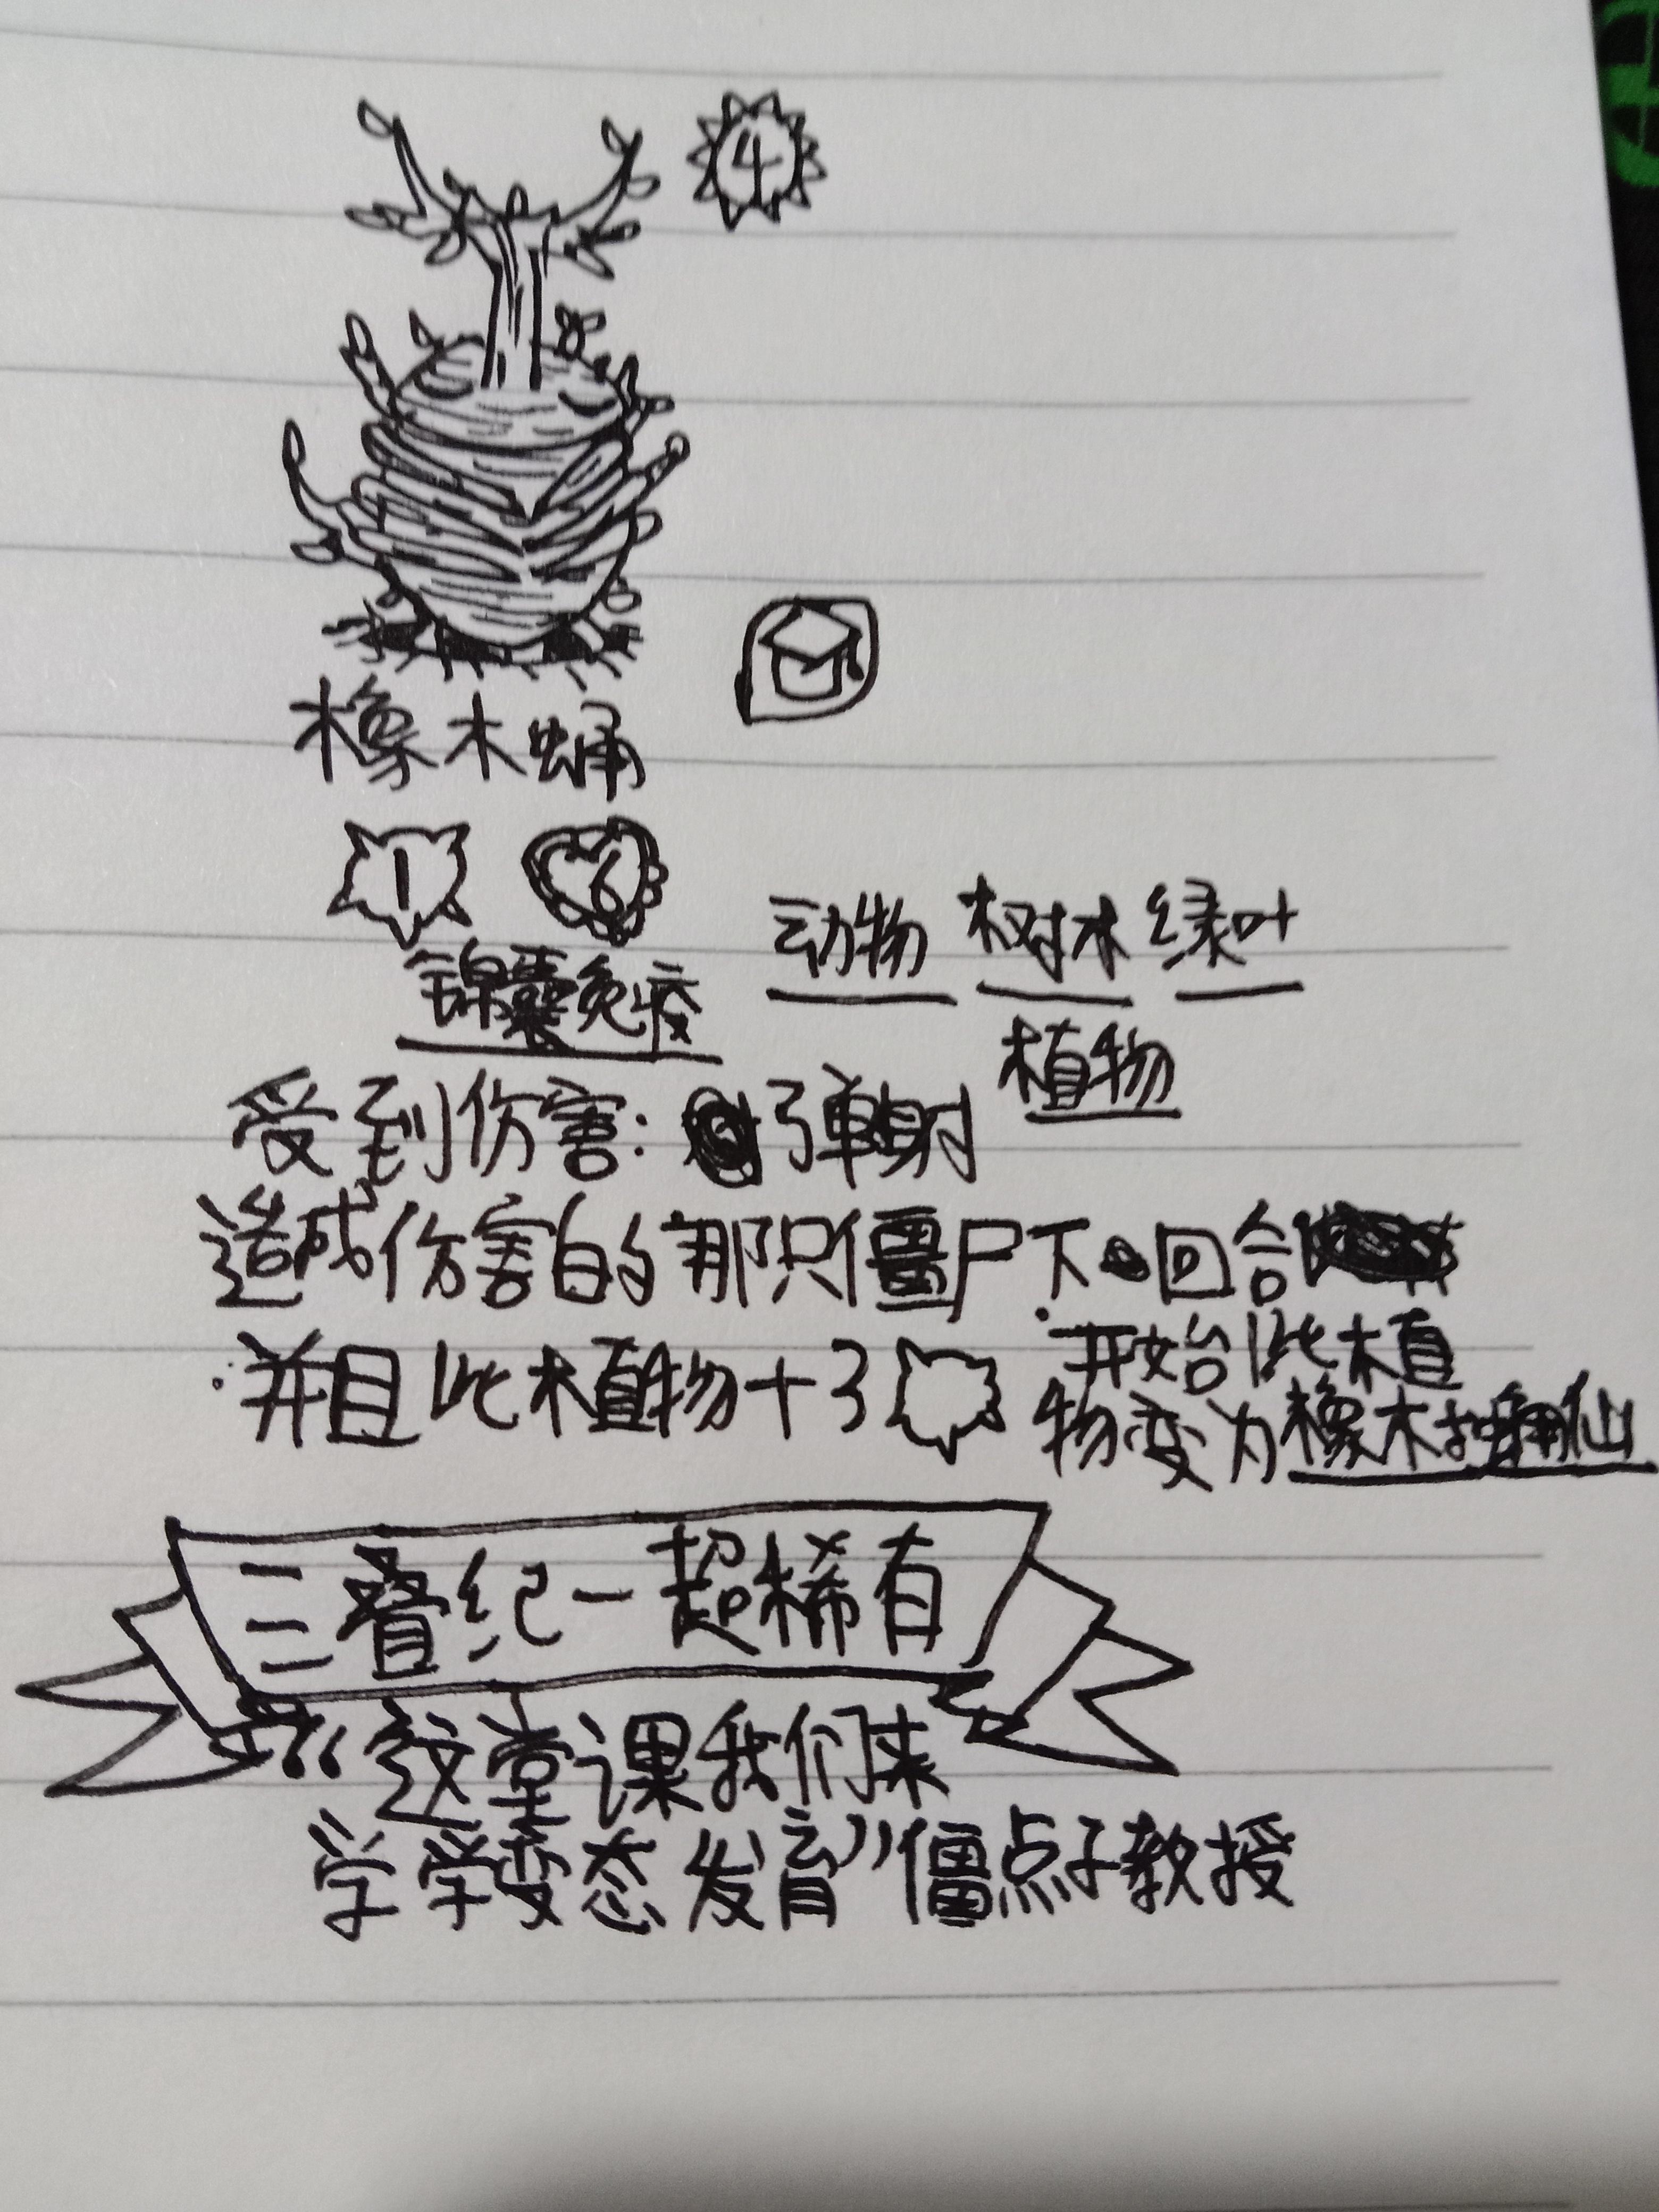 4
橡木蛹
1 6
动物 树木 绿叶
锦囊免疫
植物
受到伤害:弹射
造成伤害的那只僵尸下回合
开始此植
·并且此植物+3
物变为橡木独角仙
三叠纪-超稀有
“这堂课我们来
学学变态发育”僵点子教授